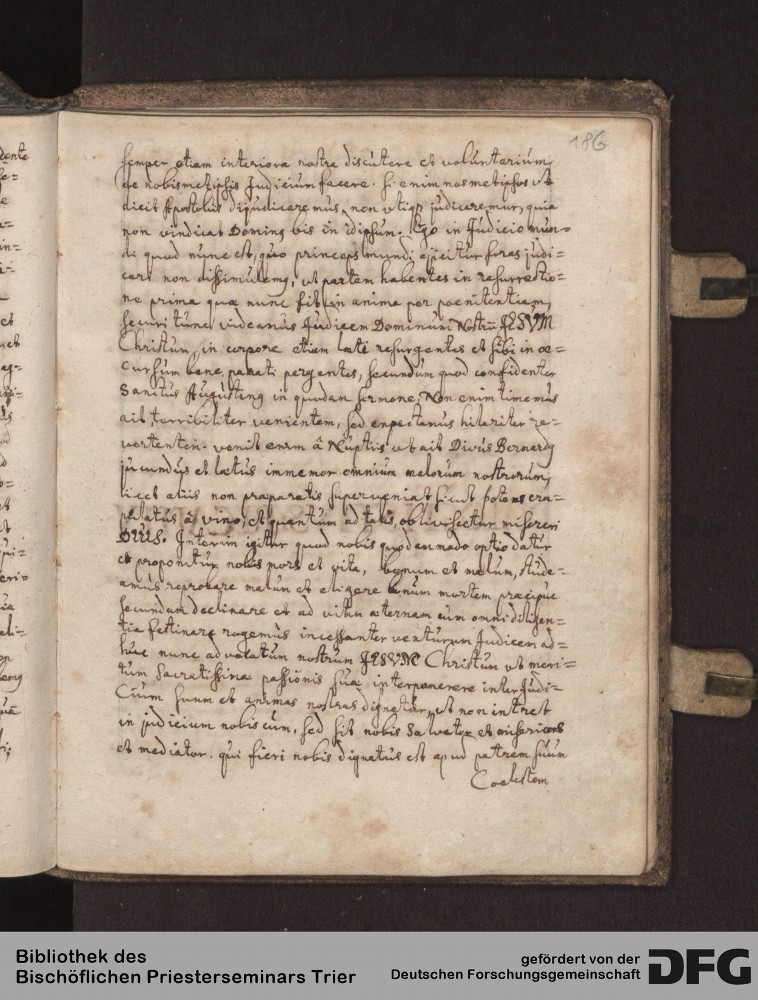 186
semper etiam interiora nostra discutere et voluntarium
de nobismetipsis Judicium facere. Si enim nosmetipsos ut
dicit Apostolus dijudicaremus, non utiqz judicaremur, quia
non vindicat Dominus bis in idipsum. Ergo in Judicio mun=
di quod nunc est, quo princeps mundi ejicitur foras judi=
cari non dissimulemus, ut partem habentes in resurrectio=
ne prima quæ nunc fit in anima per pœnitentiam,
securi tunc videamus Judicem Dominum Nostrũ JESVM
Christum, in corpore etiam læti resurgentes et sibi in oc=
cursum bene parati pergentes, secundum quod confidenter
Sanctus Augustinus in quodam sermone, Non enim timemus
ait, terribiliter venientem, sed expectamus hilariter re=
vertentem. venit enim â Nuptiis ut ait Divus Bernardus
jucundus et lætus immemor omnium malorum nostrorum,
licet aliis non præparatis superveniat sicut potens cra=
pulatus â vino, et quantum ad tales, obliviscetur misereri
DEUS. Interim igitur quod nobis quodammodo optio datur
et proponitur nobis mors et vita, bonum et malum, stude=
amus reprobare malum et eligere bonum mortem præcipue
secundam declinare et ad vitam æternam cum omni diligen=
tia festinare rogemus incessanter venturum Judicem ad=
huc nunc advocatum nostrum JESVM Christum ut meri=
tum Sacratissimæ passionis suæ interponere inter Judi=
cium suum et animas nostras dignetur, ut non intret
in judicium nobiscum, sed sit nobis Salvator et misericors
et mediator. qui fieri nobis dignatus est apud patrem suum
Coelestem
Bibliothek des
Bischöflichen Priesterseminars Trier
gefördert von der
Deutschen Forschungsgemeinschaft
DFG